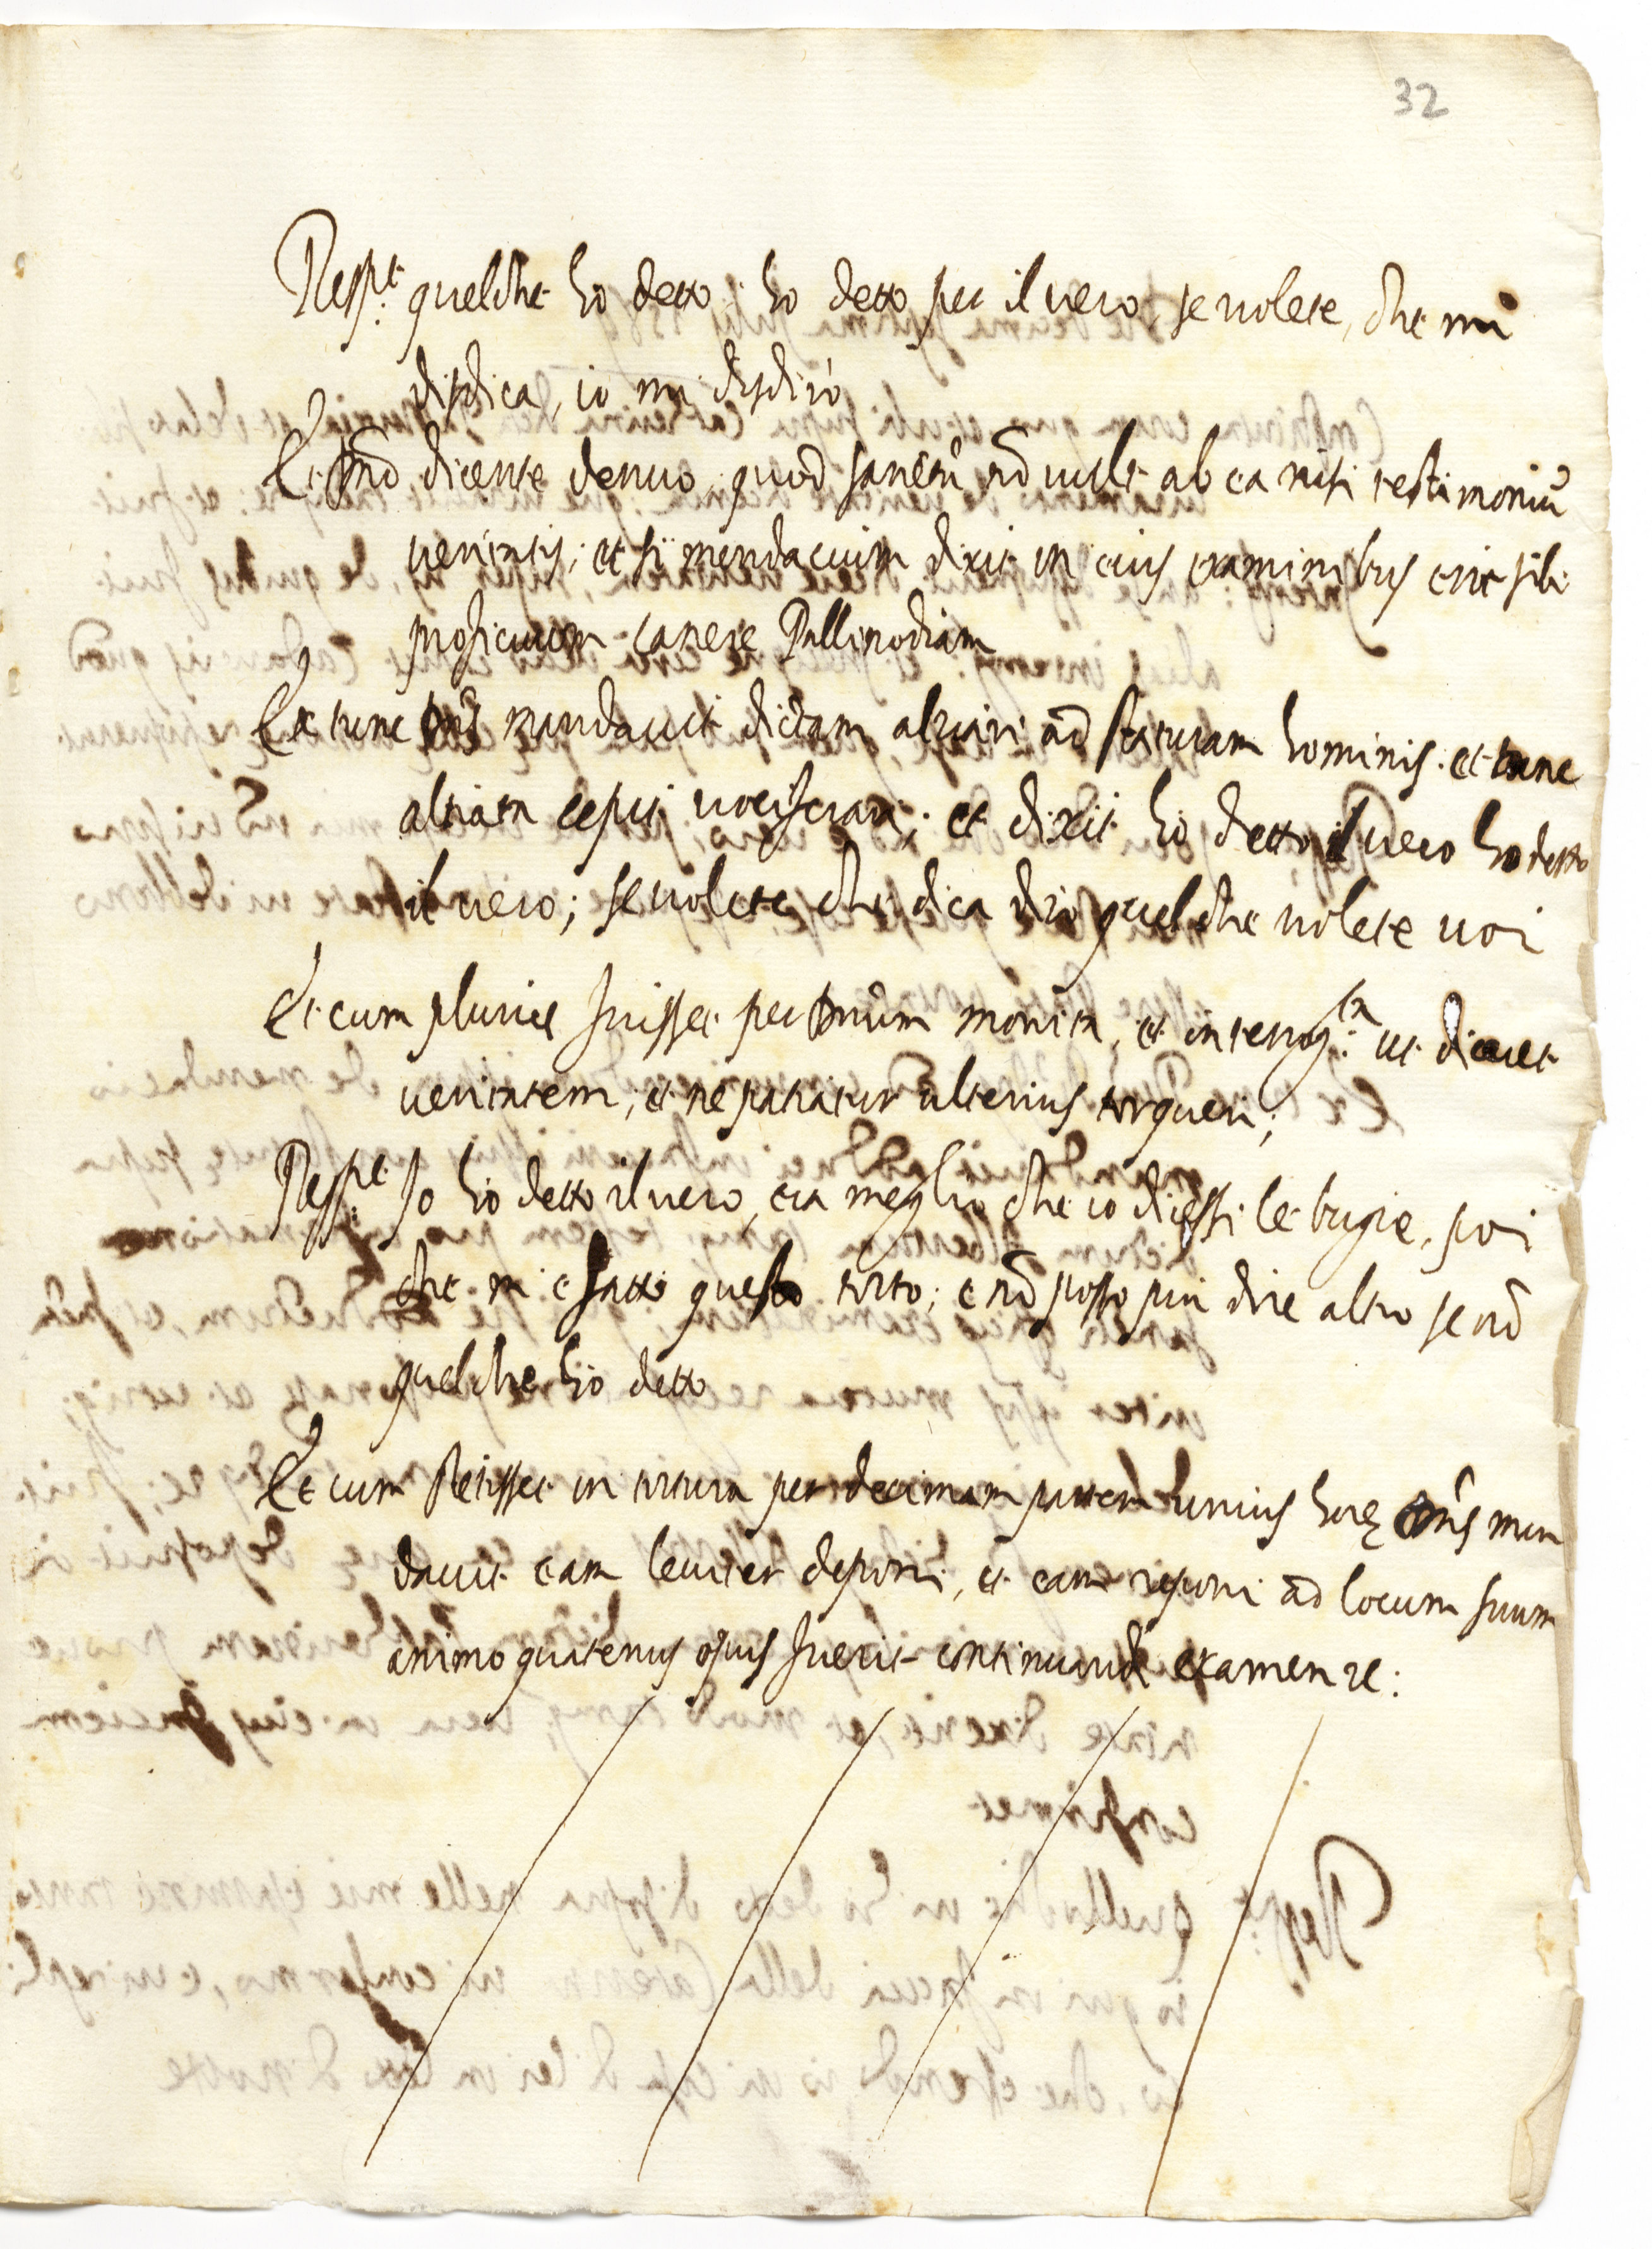 32
Resp.t quelche hò detto hò detto per il vero, se volete, che mi
disdica, io mi disdirò
Et Dnō dicente denuo, quod sanctū nō vult ab ea nisi testimoniū
veritatis; et si mendacium dixit in eius examinibus erit sibi
proficuum canere Pallinodiam
Et tunc Dnūs mandavit dictam altiari ad staturam hominis. et tunc
altiata cepit vociferari; et dixit hò detto il vero ho detto
il vero; se volete che dica dirò quelche volete voi
Et cum pluries fuisset per Dnūm monita, et interrog.ta ut diceret
veritatem, et ne patiatur ulterius torqueri;
Resp.t Io hò detto il vero, era meglio che io dicessi le bugie, poi
che mi è fatto questo torto; e nō posso più dire altro se nō
quelche hò detto
Et cum stetisset in tortura per decimam partem unius horę Dnūs man
davit eam leviter deponi, et eam reponi ad locum suum
animo quatenus opus fuerit continuandi examen re: